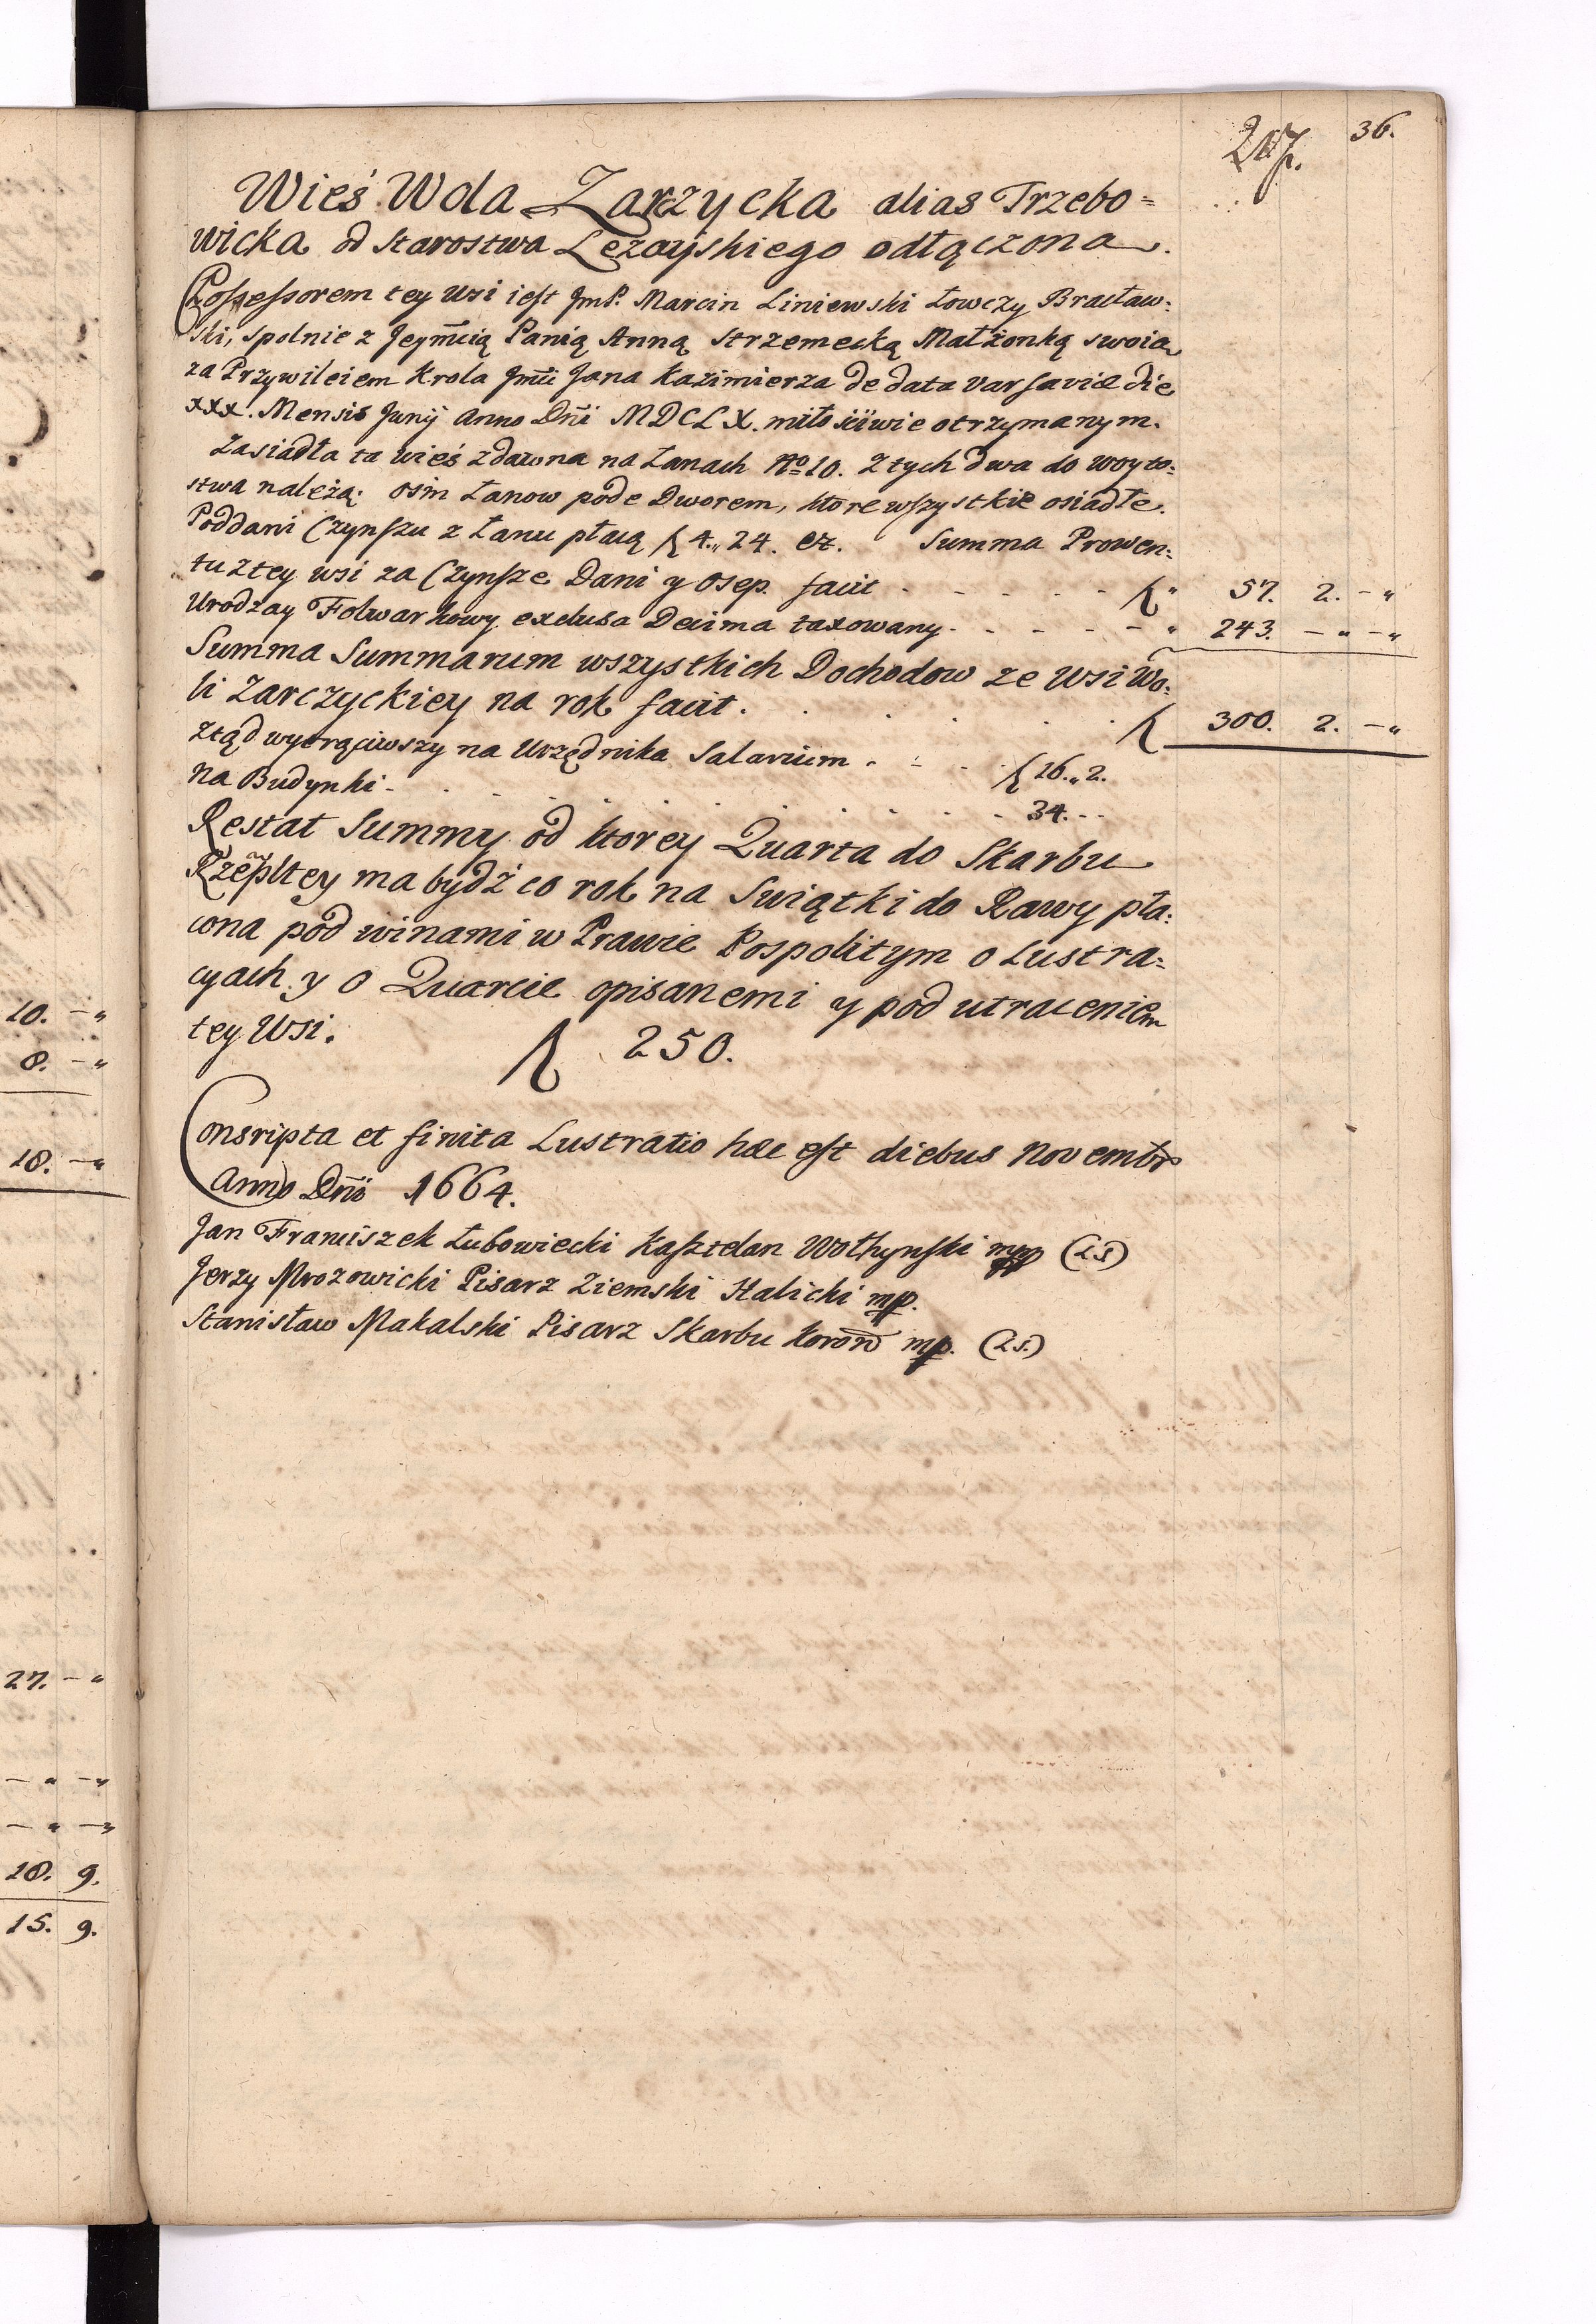 207. 36.
Wieś Wola Zarzycka alias Trzebo=
wicka od Starostwa Leżayskiego odłączona.
Possessorem tey Wsi iest JmP. Marcin Liniewski Łowczy Bracław:
ski, spolnie z Jeymcią Panią Anną Strzemecką Małżonką swoią
za Przywileiem Krola Jmci Jana Kazimierza de data Varsaviæ die
xxx. Mensis Junij Anno Dñi MDCLX. miłościwie otrzymanym.
Zasiadła ta wieś zdawna na Łanach No 10. Z tych dwa do Woyto:
stwa należą. osm Łanow pode Dworem, ktore wszystkie osiadłe.
Poddani Czynszu z Łanu płacą f 4.„ 24. etc. Summa Prowen:
tu z tey wsi za Czynsze Dani y Osep. facit - - - - - f „ 57. 2. - „
Urodzay Folwarkowy exclusa Decima taxowany - - - - - „ 243. - „ - „
Summa Summarum wszystkich Dochodow ze Wsi Wo:
li Zarczyckiey na rok facit . . . . . . f 300. 2. - „
Ztąd wytrąciwszy na Urzędnika Salarium - - - f 16.„ 2.
na Budynki - . . . . . . . . 34. - -
Restat Summy od ktorey Quarta do Skarbu
Rzeplltey ma bydź co rok na Swiątki do Rawy pła:
cona pod winami w Prawie Pospolitym o Lustra=
cyach y o Quarcie opisanemi y pod utraceniem
tey Wsi. f 250.
Consripta et finita Lustratio hæc est diebus Novembr
Anno Dñi 1664.
Jan Franciszek Łubowiecki Kasztelan Wołhynski mpp (LS)
Jerzy Mrozowicki Pisarz Ziemski Halicki mp.
Stanisław Makalski Pisarz Skarbu Koron mp. (LS.)
10. - „
8. - „
18. - „
27. - „
- „ - „
- „ - „
18. 9.
15. 9.